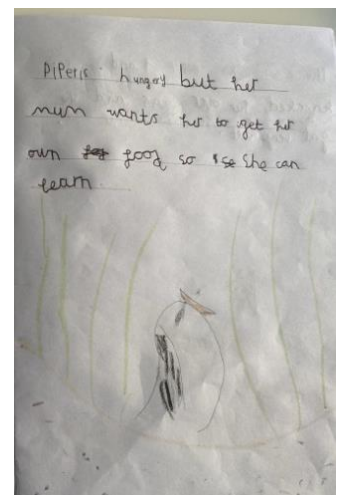 Piper is hungry but her
mum wants her to get her
own food so she can
learn